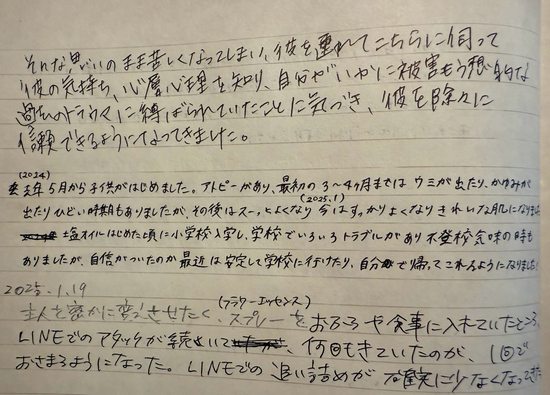 そんな思いのまま苦しくなってしまい、彼を連れてこちらに伺って
彼の気持ち、心層心理を知り、自分がいかに被害もう想的な
過去のトラウマに縛ばられていたことに気づき、彼を除々に
信頼できるようになってきました。
(2024)
去年5月から子供がはじめました。アトピーがあり、最初の3〜4ヶ月までは ウミが出たり、かゆみが
出たりひどい時期もありましたが、その後はスーっとよくなり 今はすっかりよくなりきれいな肌になりました
(2025.1)
塩オイルはじめた頃に小学校入学し、学校でいろいろトラブルがあり 不登校気味の時も
ありましたが、自信がついたのか最近は安定して学校に行けたり、自分で帰ってこれるようになりました
2025.1.19
(フラワーエッセンス)
主人を密かに変えさせたく、スプレーをおふろや食事に入れていたところ、
LINEでのアタックが続いて、何回もきていたのが、1回で
おさまるようになった。LINEでの追い詰めが確実に少なくなってきた